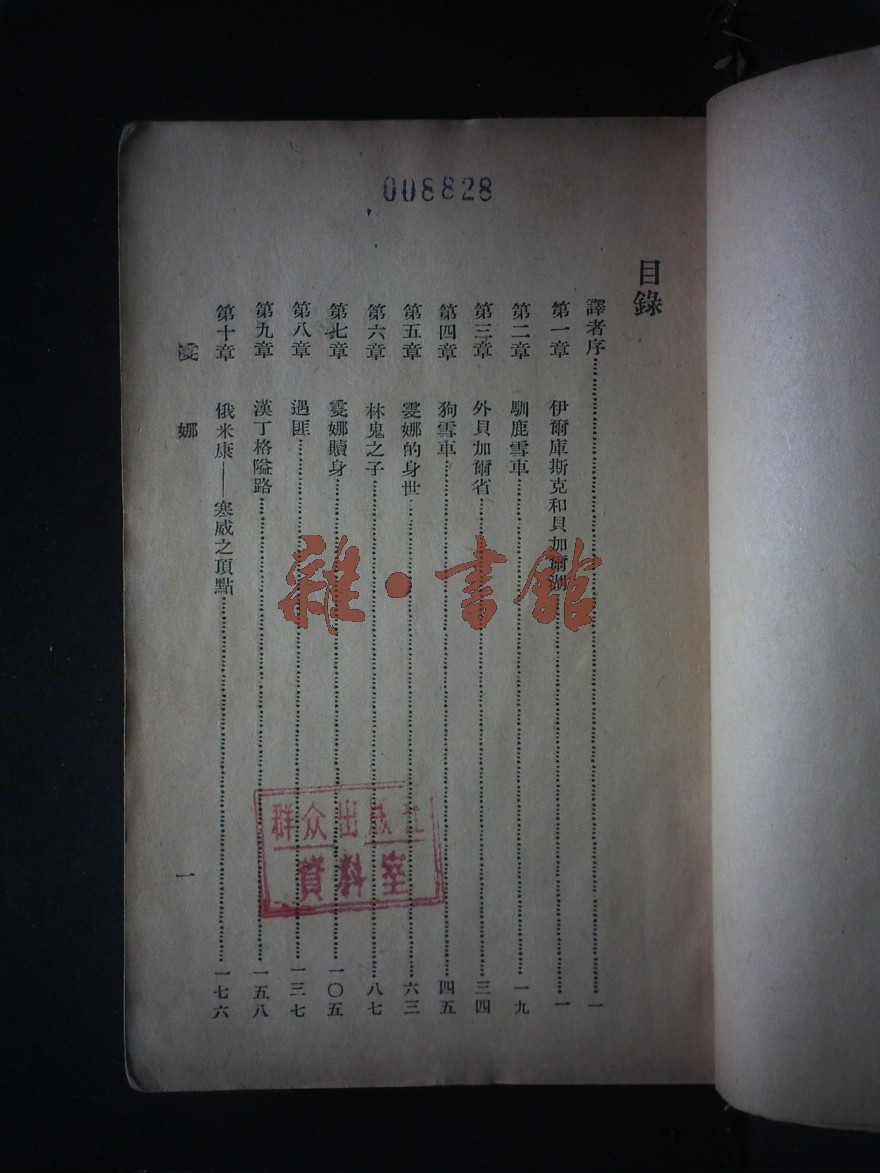 008828
目錄
譯者序……一
第一章 伊爾庫斯克和貝加爾湖……一
第二章 馴鹿雪車……一九
第三章 外貝加爾省……三四
第四章 狗雪車……四五
第五章 雯娜的身世……六三
第六章 林鬼之子……八七
第七章 雯娜贖身……一〇五
第八章 遇匪……一三七
第九章 漢丁格隘路……一五八
第十章 俄米康——寒威之頂點……一七六
雯娜
一
雜·書館
群众出版社
資料室